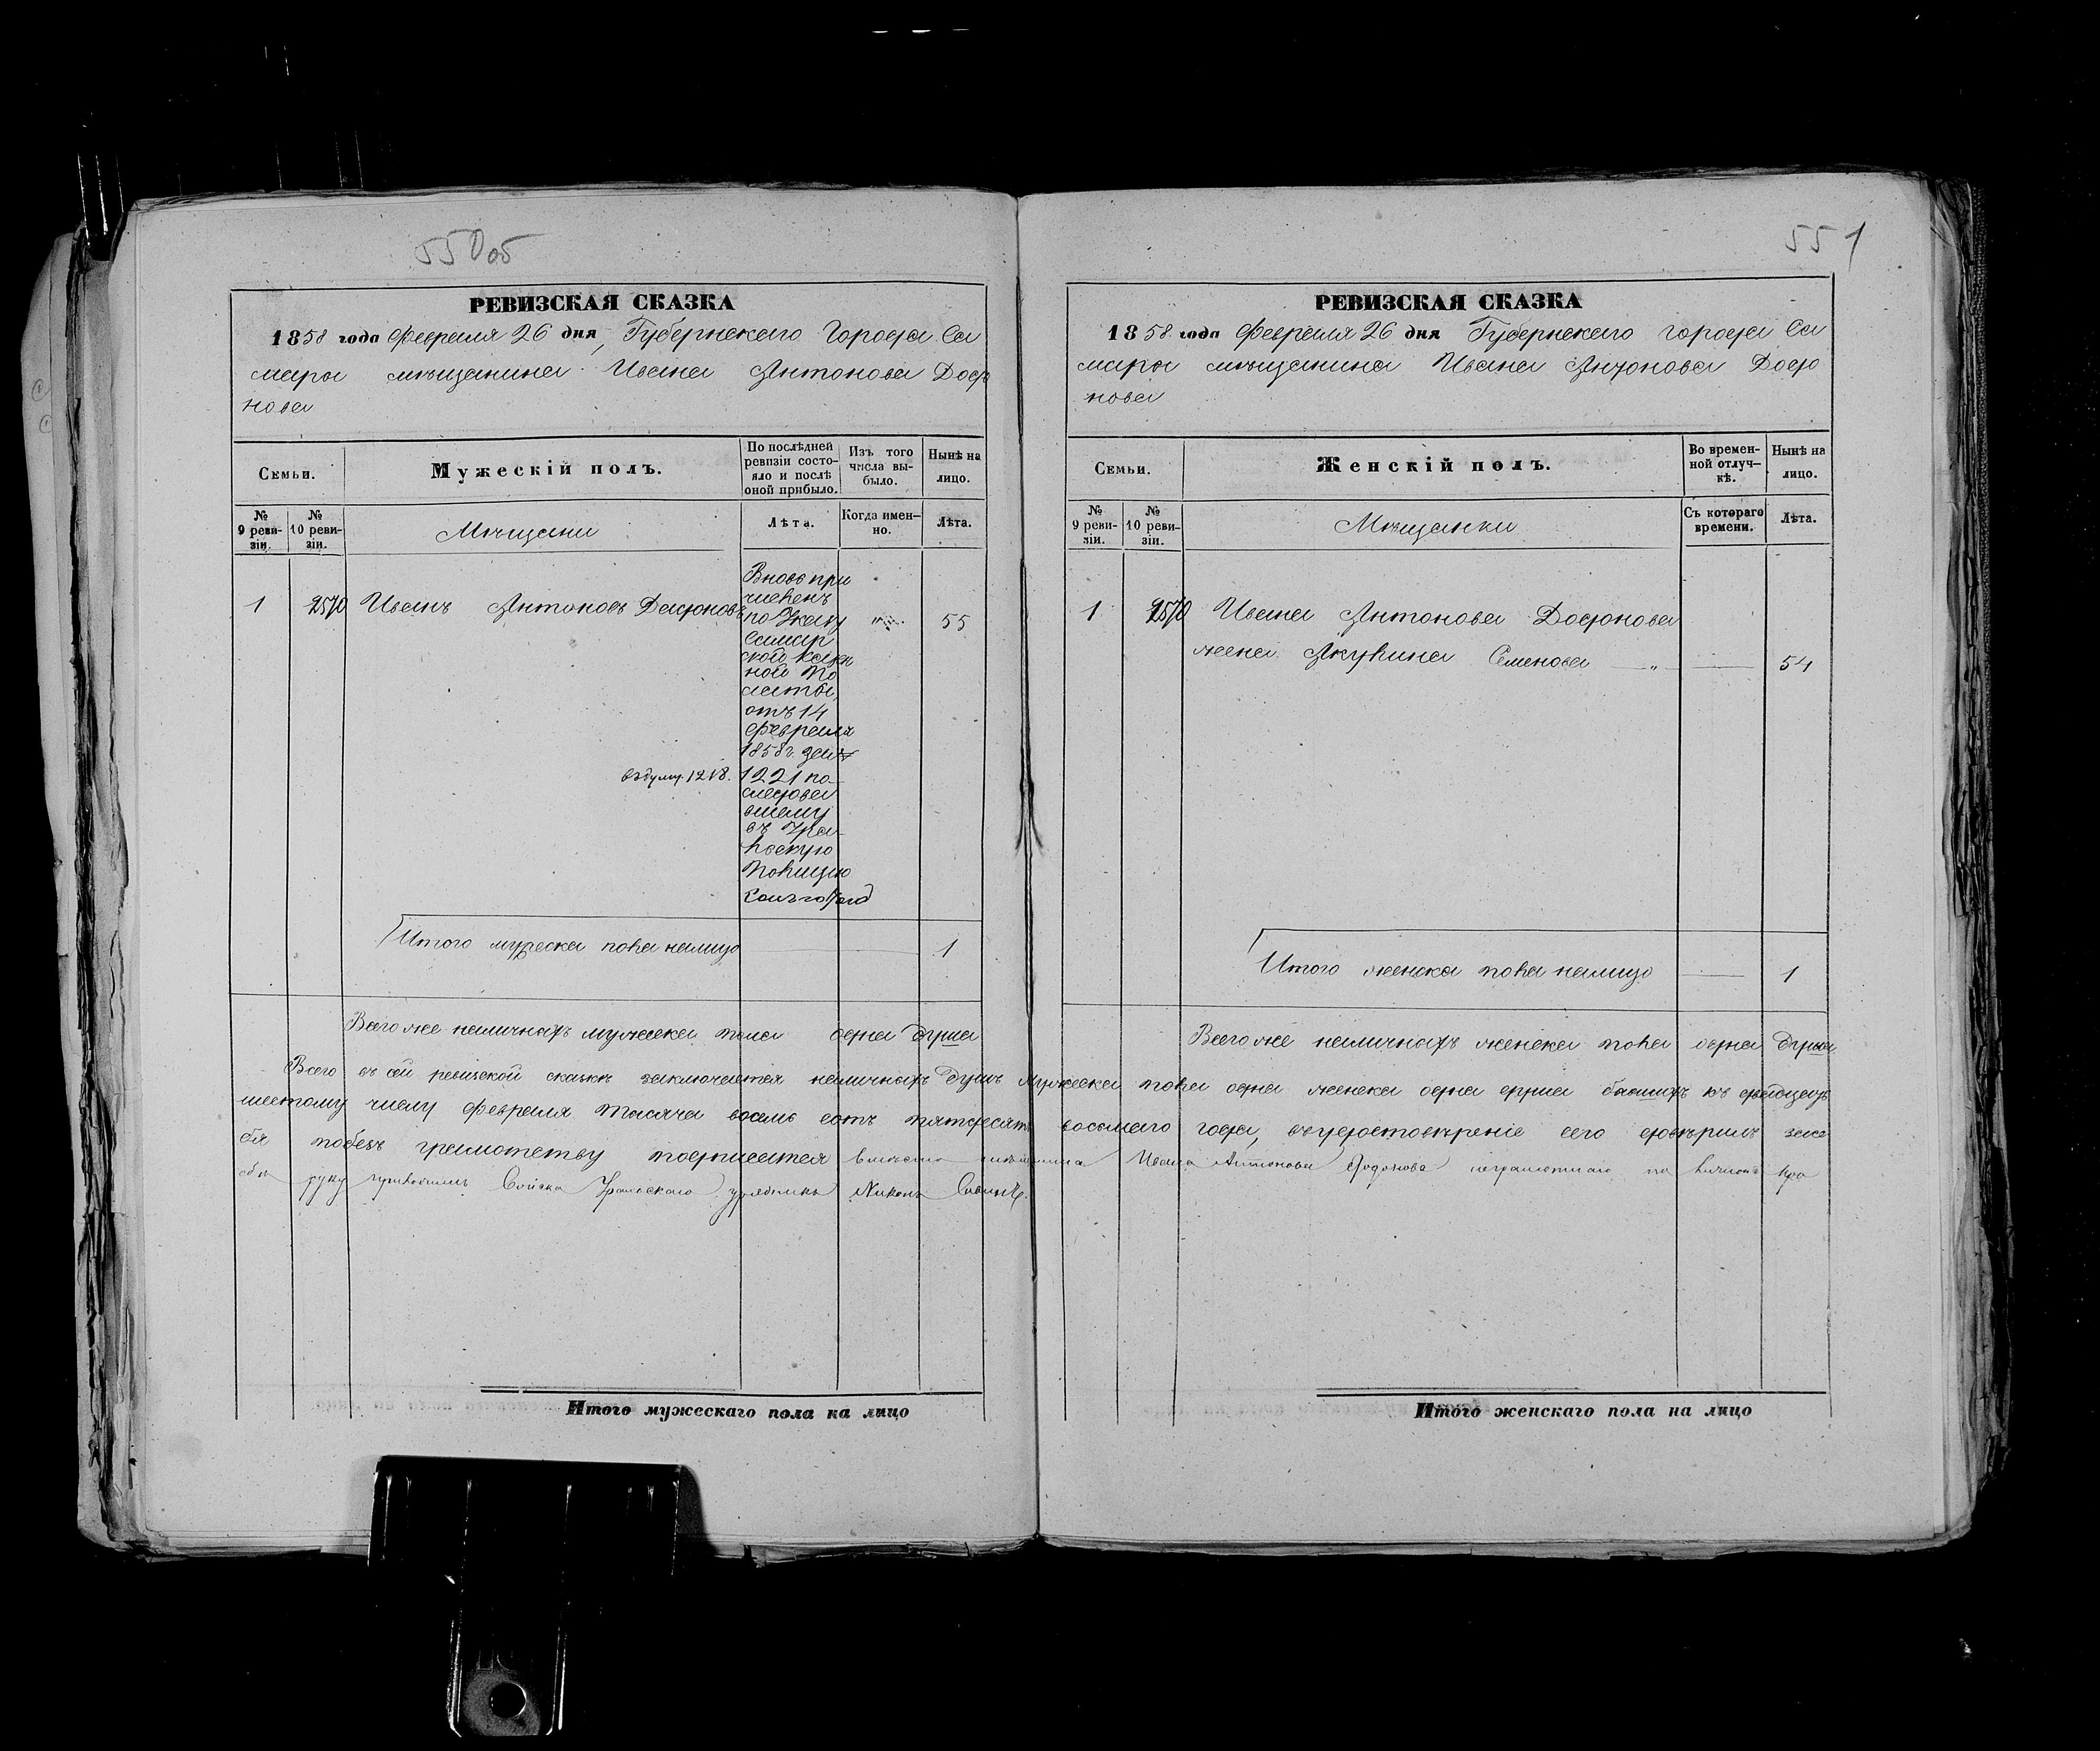 550об
РЕВИЗСКАЯ СКАЗКА
1858 года Февраля 26 дня, Губернскаго Города Са
мары мѣщанина Ивана Антонова Додо
нова
Семьи.
Мужескій полъ.
По послѣдней ревизіи состояло и послѣ оной прибыло.
Изъ того числа выбыло.
Нынѣ на лицо.
№ 9 ревизіи.
№ 10 ревизіи.
Мѣщани
Лѣта.
Когда именно.
Лѣта.
1 2570 Иванъ Антоновъ Додоновъ
Вновь при
численъ
по Указу
Самар
ской казен
ной Па
латы
отъ 14
Февраля
1858 г. за №
1221 по
следова
вшему
въ Ура
льскую
Полицію
55
1218.
Итого мужеска пола налицо 1
Всего же наличныхъ мужеска пола одна душа
551
РЕВИЗСКАЯ СКАЗКА
1858 года Февраля 26 дня Губернскаго города Са
мары мѣщанина Ивана Антонова Додо
нова
Семьи.
Женскій полъ.
Во временной отлучкѣ.
Нынѣ на лицо.
№ 9 ревизіи.
№ 10 ревизіи.
Мѣщанки
Съ котораго времени.
Лѣта.
1 2570 Ивана Антонова Додонова
жена Акулина Семенова 54
Итого женска пола налицо 1
Всего же наличныхъ женска пола одна душа
Всего въ сей ревизской сказкѣ заключается наличныхъ душъ мужеска пола одна женска одна душа бывшихъ къ двадцать
шестому числу Февраля тысяча восемь сотъ пятдесятъ восьмаго года, въ удостовѣреніе сего
грамотству подписается вмѣсто мѣщанина Ивана Антонова Додонова неграмотнаго по личной про
руку приложилъ Войска Уральскаго урядникъ Никонъ
Итого мужескаго пола на лицо
Итого женскаго пола на лицо